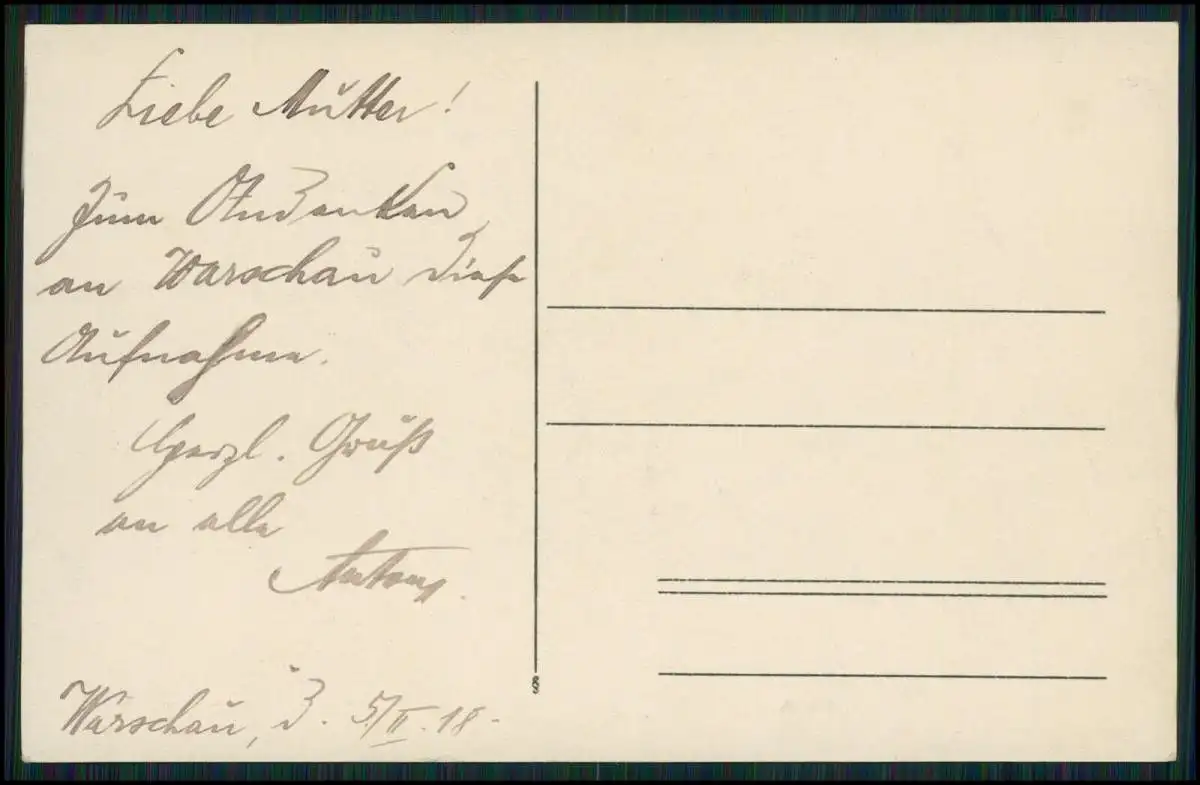 Liebe Mutter!
Zum Andenken
an Warschau diese
Aufnahme.
Herzl. Gruß
an alle
Antony.
Warschau, d. 5/II. 18.